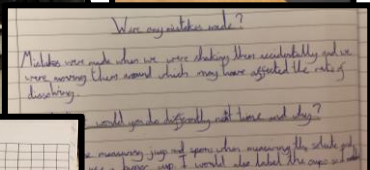 Were any mistakes made?
Mistakes were made when we were shaking them accidentally and we
were moving them around which may have affected the rate of
dissolving.
would you do differently next time and why?
measuring jugs and spoons when measuring the
I would also label the cups